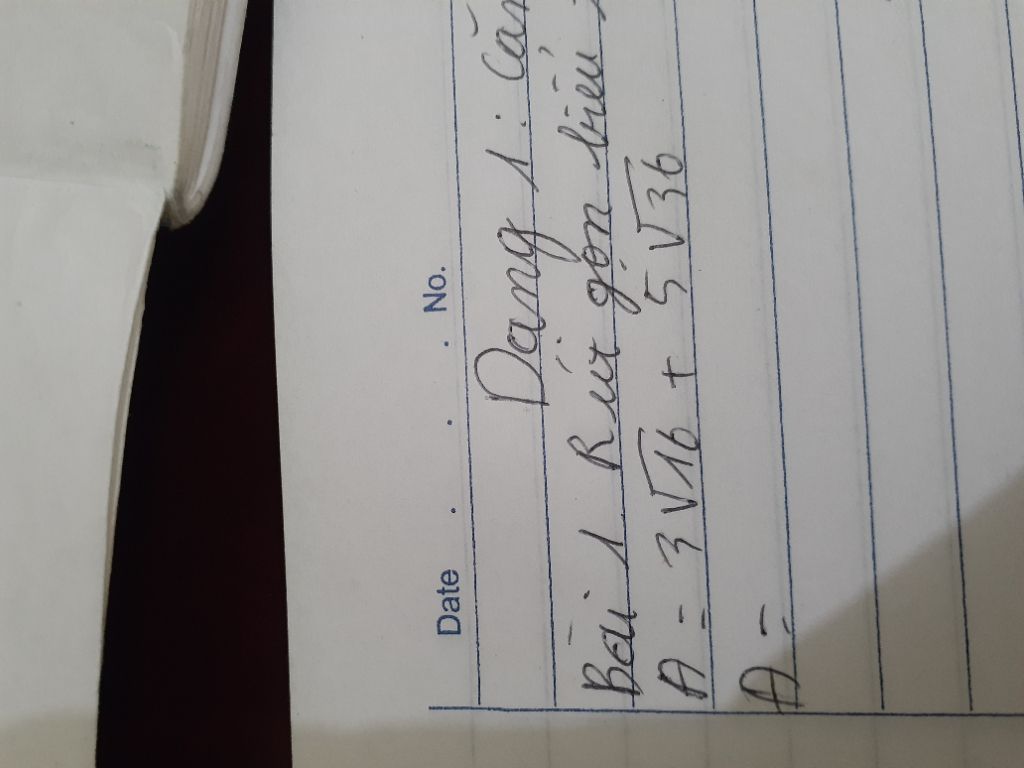 Date . . . No.
Dạng 1 : Căn
Bài 1 Rút gọn biểu
A = 3√16 + 5√36
A =